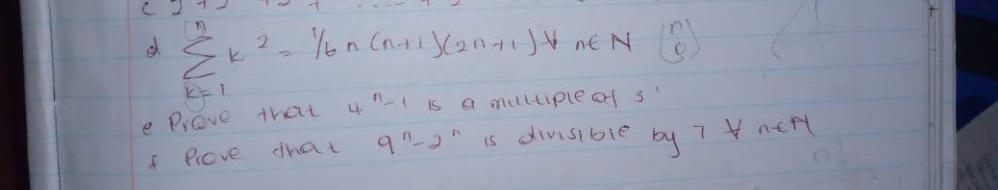 d n Σ k=1 k² = 1/6 n (n+1)(2n+1) ∀ n∈N (n 0)
e Prove that 4ⁿ-1 is a multiple of 3
f Prove that 9ⁿ-2ⁿ is divisible by 7 ∀ n∈N